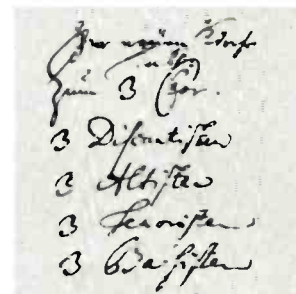 neüen Kirche
Zum 3 Chor.
3 Discantisten
3 Altisten
3 Tenoristen
3 Bassisten